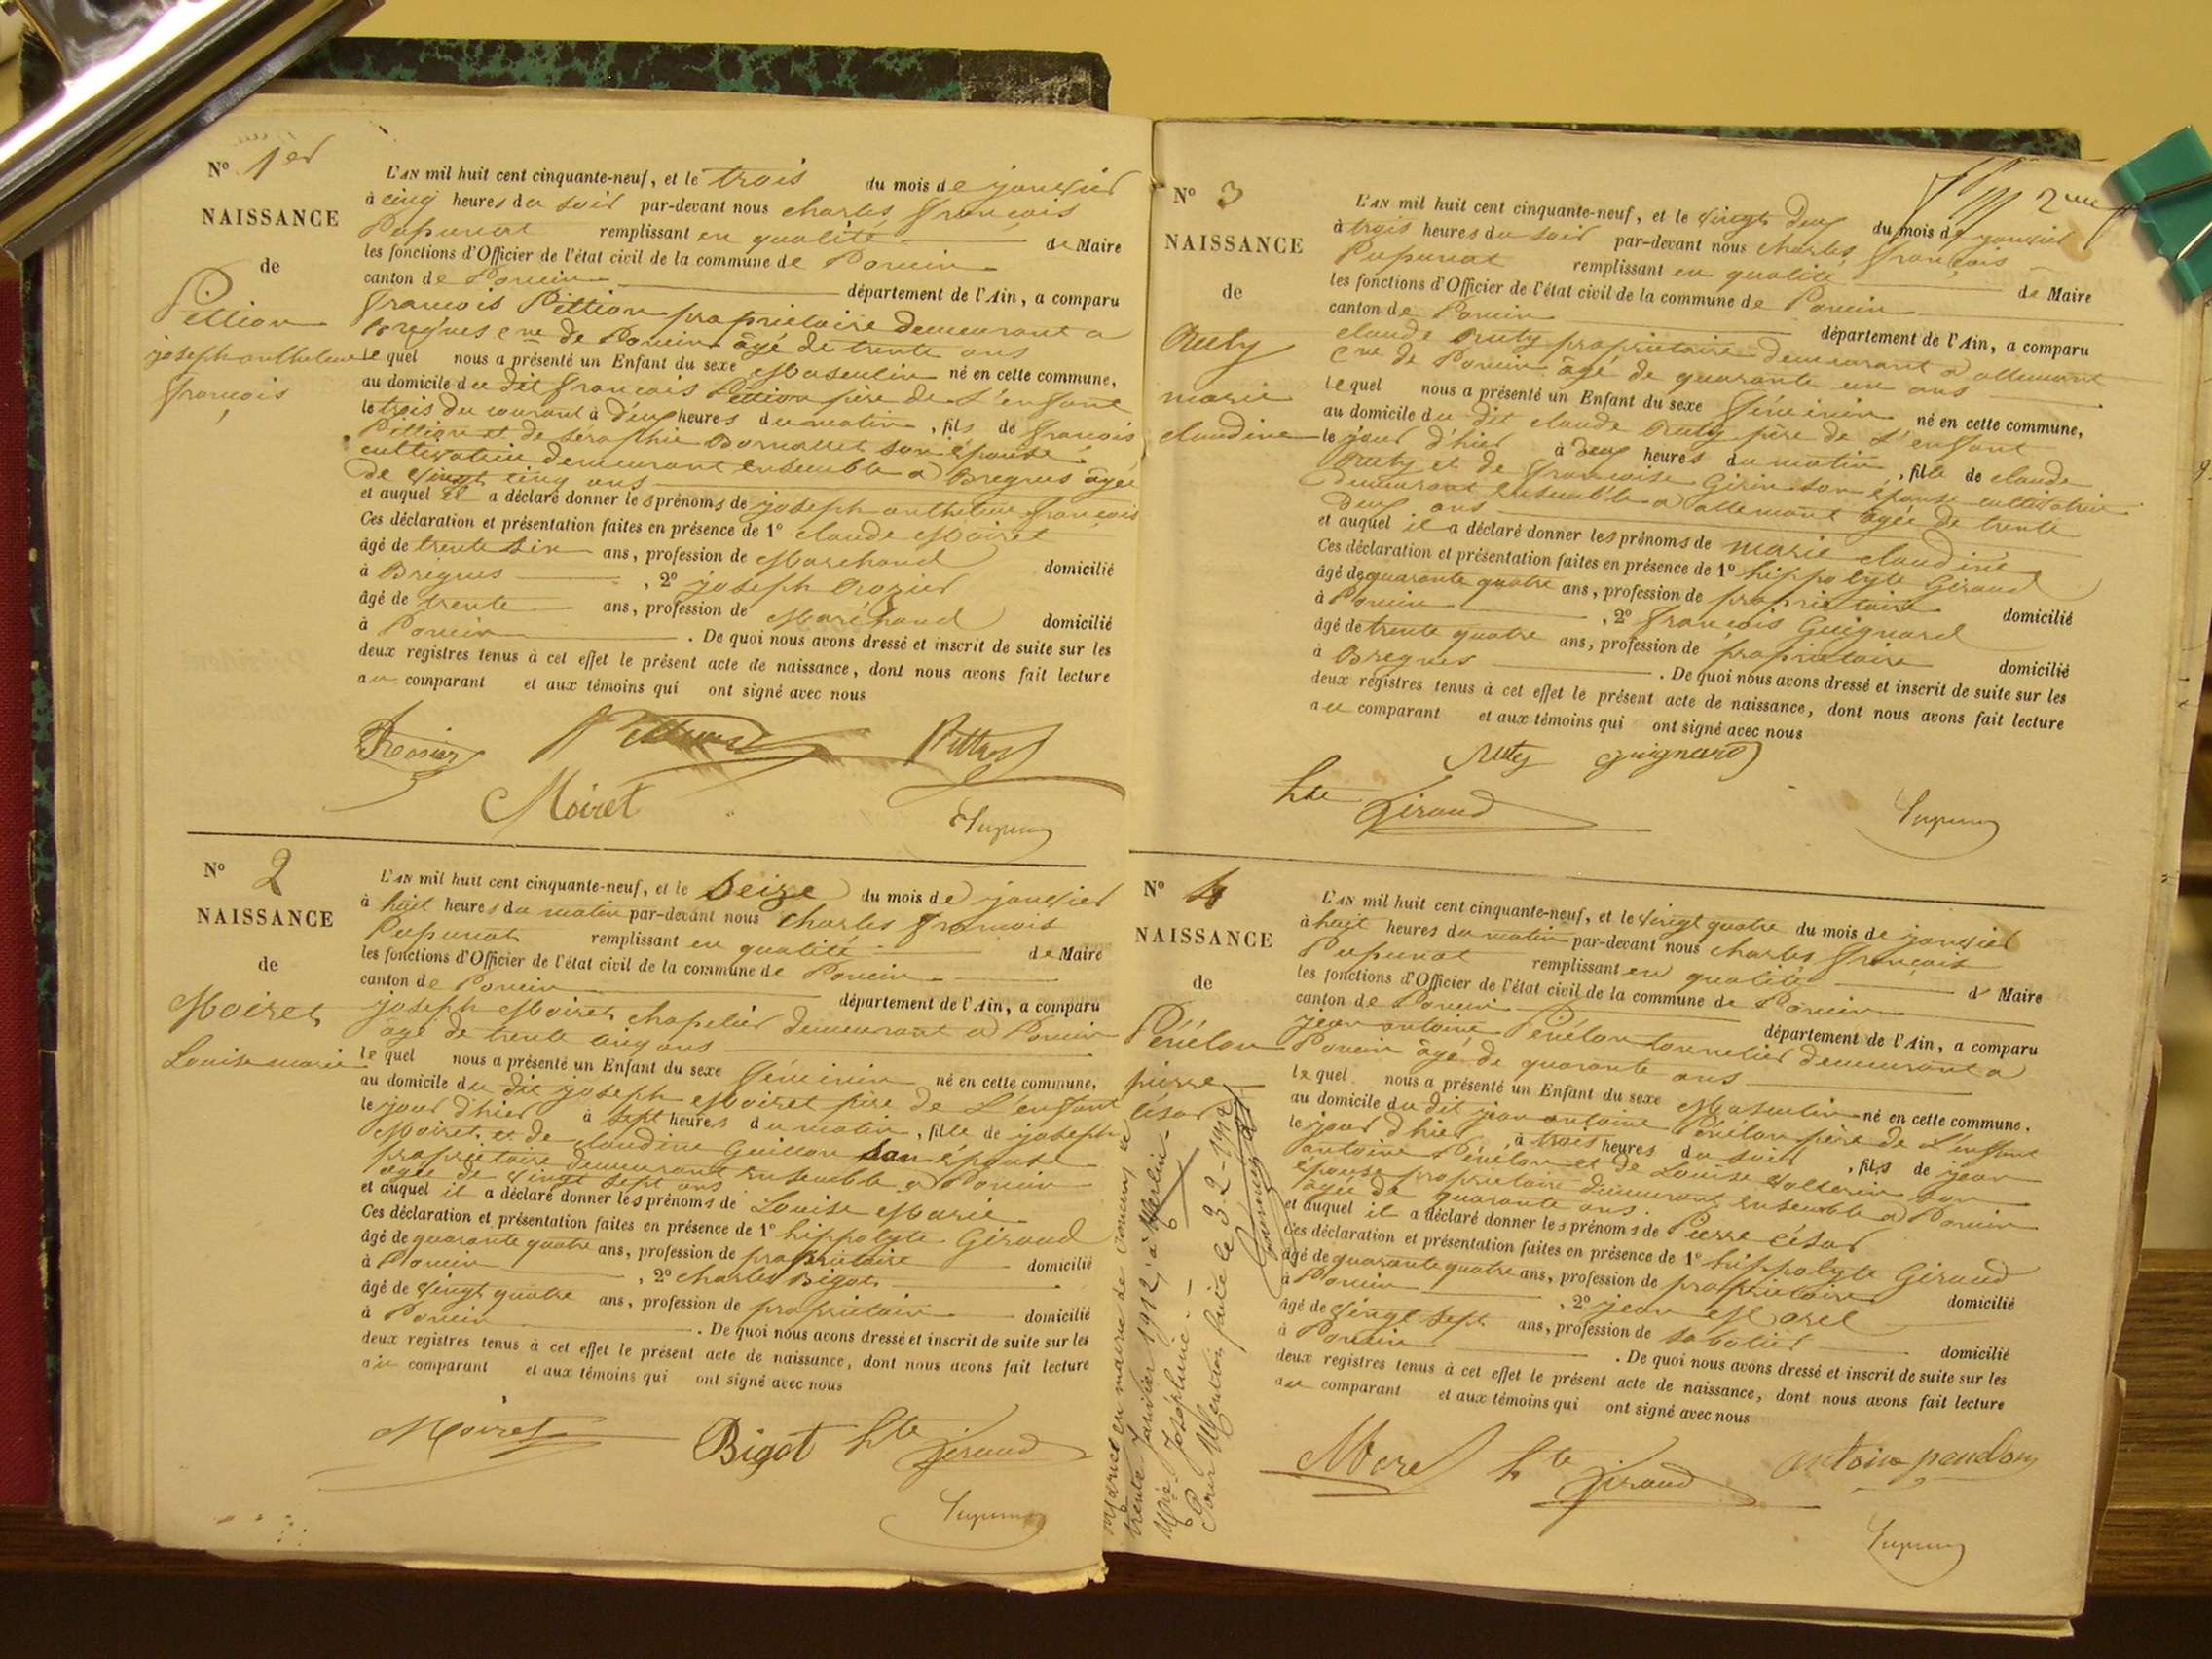 N° 1er
NAISSANCE
de
Pittion
joseph anthelme
françois
L'AN mil huit cent cinquante-neuf, et le trois du mois de janvier
à cinq heures du soir par-devant nous charles françois
remplissant en qualité de Maire
les fonctions d'Officier de l'état civil de la commune de Poncin
canton de Poncin département de l'Ain, a comparu
françois Pittion propriétaire demeurant a
Bregnes cne de Poncin âgé de trente ans
le quel nous a présenté un Enfant du sexe Masculin né en cette commune,
au domicile du dit françois Pittion père de L'enfant
le trois du courant à deux heures du matin, fils de françois
Pittion et de séraphie son épouse
cultivatrice demeurant ensemble a Bregnes âgée
de vingt cinq ans
et auquel il a déclaré donner les prénoms de joseph anthelme françois
Ces déclaration et présentation faites en présence de 1° claude Moiret
âgé de trente six ans, profession de Marchand domicilié
à Bregnes, 2° joseph Crozier
âgé de trente ans, profession de Maréchand domicilié
à Poncin. De quoi nous avons dressé et inscrit de suite sur les
deux registres tenus à cet effet le présent acte de naissance, dont nous avons fait lecture
au comparant et aux témoins qui ont signé avec nous
Pittion
Moiret
N° 2
NAISSANCE
de
Moiret
Louise marie
L'AN mil huit cent cinquante-neuf, et le seize du mois de janvier
à huit heures du matin par-devant nous Charles françois
remplissant en qualité de Maire
les fonctions d'Officier de l'état civil de la commune de Poncin
canton de Poncin département de l'Ain, a comparu
joseph Moiret chapelier demeurant a Poncin
âgé de trente cinq ans
le quel nous a présenté un Enfant du sexe féminin né en cette commune,
au domicile du dit joseph Moiret père de L'enfant
le jour d'hier à sept heures du matin, fille de joseph
Moiret et de claudine Guillon son épouse
propriétaire demeurant ensemble a Poncin
âgée de vingt sept ans
et auquel il a déclaré donner les prénoms de Louise Marie
Ces déclaration et présentation faites en présence de 1° hippolyte Giraud
âgé de quarante quatre ans, profession de propriétaire domicilié
à Poncin, 2° charles Bigot
âgé de vingt quatre ans, profession de propriétaire domicilié
à Poncin. De quoi nous avons dressé et inscrit de suite sur les
deux registres tenus à cet effet le présent acte de naissance, dont nous avons fait lecture
au comparant et aux témoins qui ont signé avec nous
Moiret Bigot hte Giraud
2me
N° 3
NAISSANCE
de
Ruty
marie
claudine
L'AN mil huit cent cinquante-neuf, et le vingt deux du mois de janvier
à trois heures du soir par-devant nous charles françois
remplissant en qualité de Maire
les fonctions d'Officier de l'état civil de la commune de Poncin
canton de Poncin département de l'Ain, a comparu
claude Ruty propriétaire demeurant a allement
cne de Poncin âgé de quarante un ans
le quel nous a présenté un Enfant du sexe féminin né en cette commune,
au domicile du dit claude Ruty père de L'enfant
le jour d'hier à deux heures du matin, fille de claude
Ruty et de françoise Girin son épouse cultivatrice
demeurant ensemble a allement âgée de trente
deux ans
et auquel il a déclaré donner les prénoms de marie claudine
Ces déclaration et présentation faites en présence de 1° hippolyte Giraud
âgé de quarante quatre ans, profession de propriétaire domicilié
à Poncin, 2° françois Guignard
âgé de trente quatre ans, profession de propriétaire domicilié
à Bregnes. De quoi nous avons dressé et inscrit de suite sur les
deux registres tenus à cet effet le présent acte de naissance, dont nous avons fait lecture
au comparant et aux témoins qui ont signé avec nous
Ruty Guignard
hte Giraud
N° 4
NAISSANCE
de
Pénélon
pierre
César
L'AN mil huit cent cinquante-neuf, et le vingt quatre du mois de janvier
à huit heures du matin par-devant nous charles françois
remplissant en qualité d Maire
les fonctions d'Officier de l'état civil de la commune de Poncin
canton de Poncin département de l'Ain, a comparu
jean antoine Pénélon tonnelier demeurant a
Poncin âgé de quarante ans
le quel nous a présenté un Enfant du sexe Masculin né en cette commune,
au domicile du dit jean antoine Pénélon père de L'enfant
le jour d'hier à trois heures du soir, fils de jean
antoine Pénélon et de Louise son
épouse propriétaire demeurant ensemble a Poncin
âgée de quarante ans
et auquel il a déclaré donner les prénoms de Pierre César
Ces déclaration et présentation faites en présence de 1° hippolyte Giraud
âgé de quarante quatre ans, profession de propriétaire domicilié
à Poncin, 2° jean Morel
âgé de vingt sept ans, profession de sabotier domicilié
à Poncin. De quoi nous avons dressé et inscrit de suite sur les
deux registres tenus à cet effet le présent acte de naissance, dont nous avons fait lecture
au comparant et aux témoins qui ont signé avec nous
Morel hte Giraud antoine
Marié en mairie de
trente Janvier 1912, à Merlin
Joséphine.
Pour Mention faite le 3-2-1912